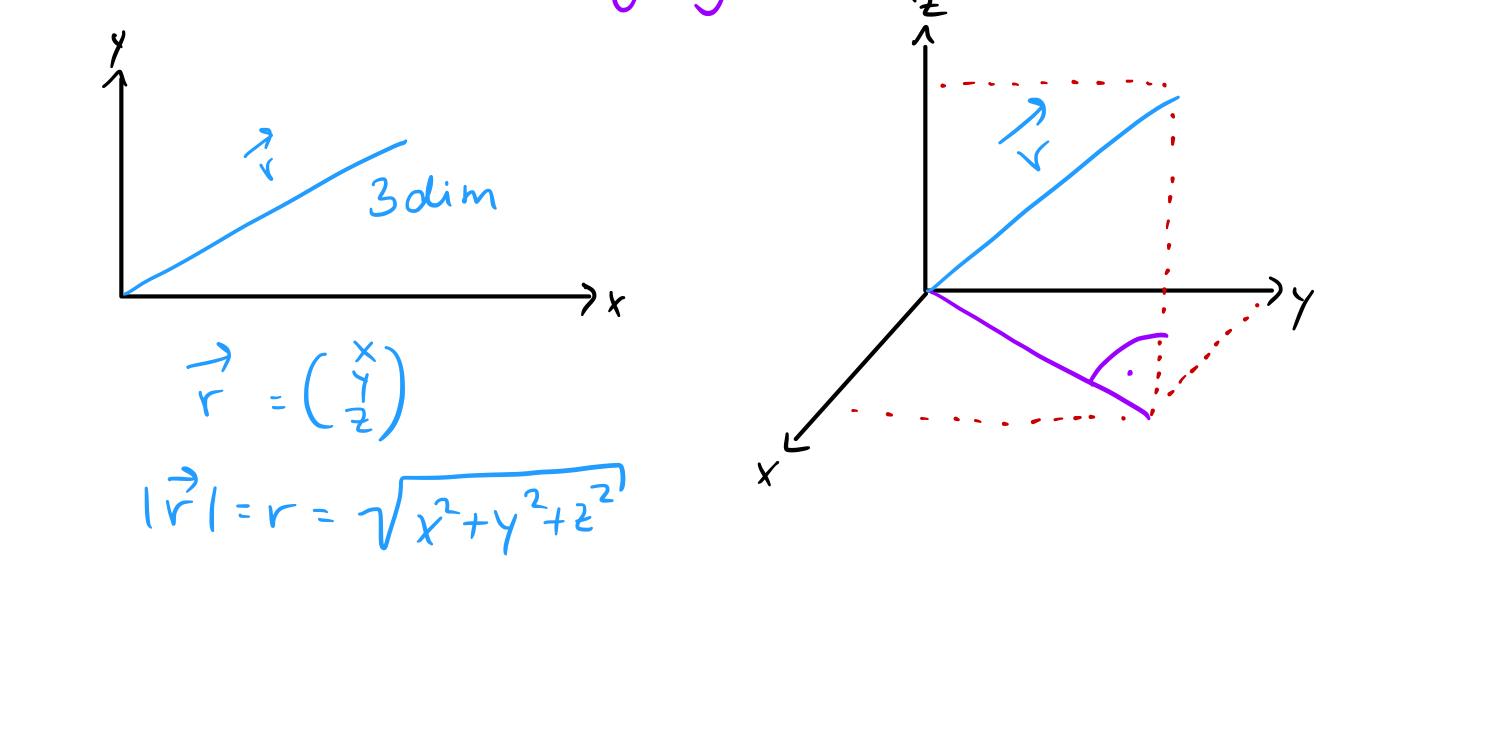 y
r⃗
3 dim
x
r⃗ = (x y z)
|r⃗| = r = √(x²+y²+z²)
z
r⃗
y
x